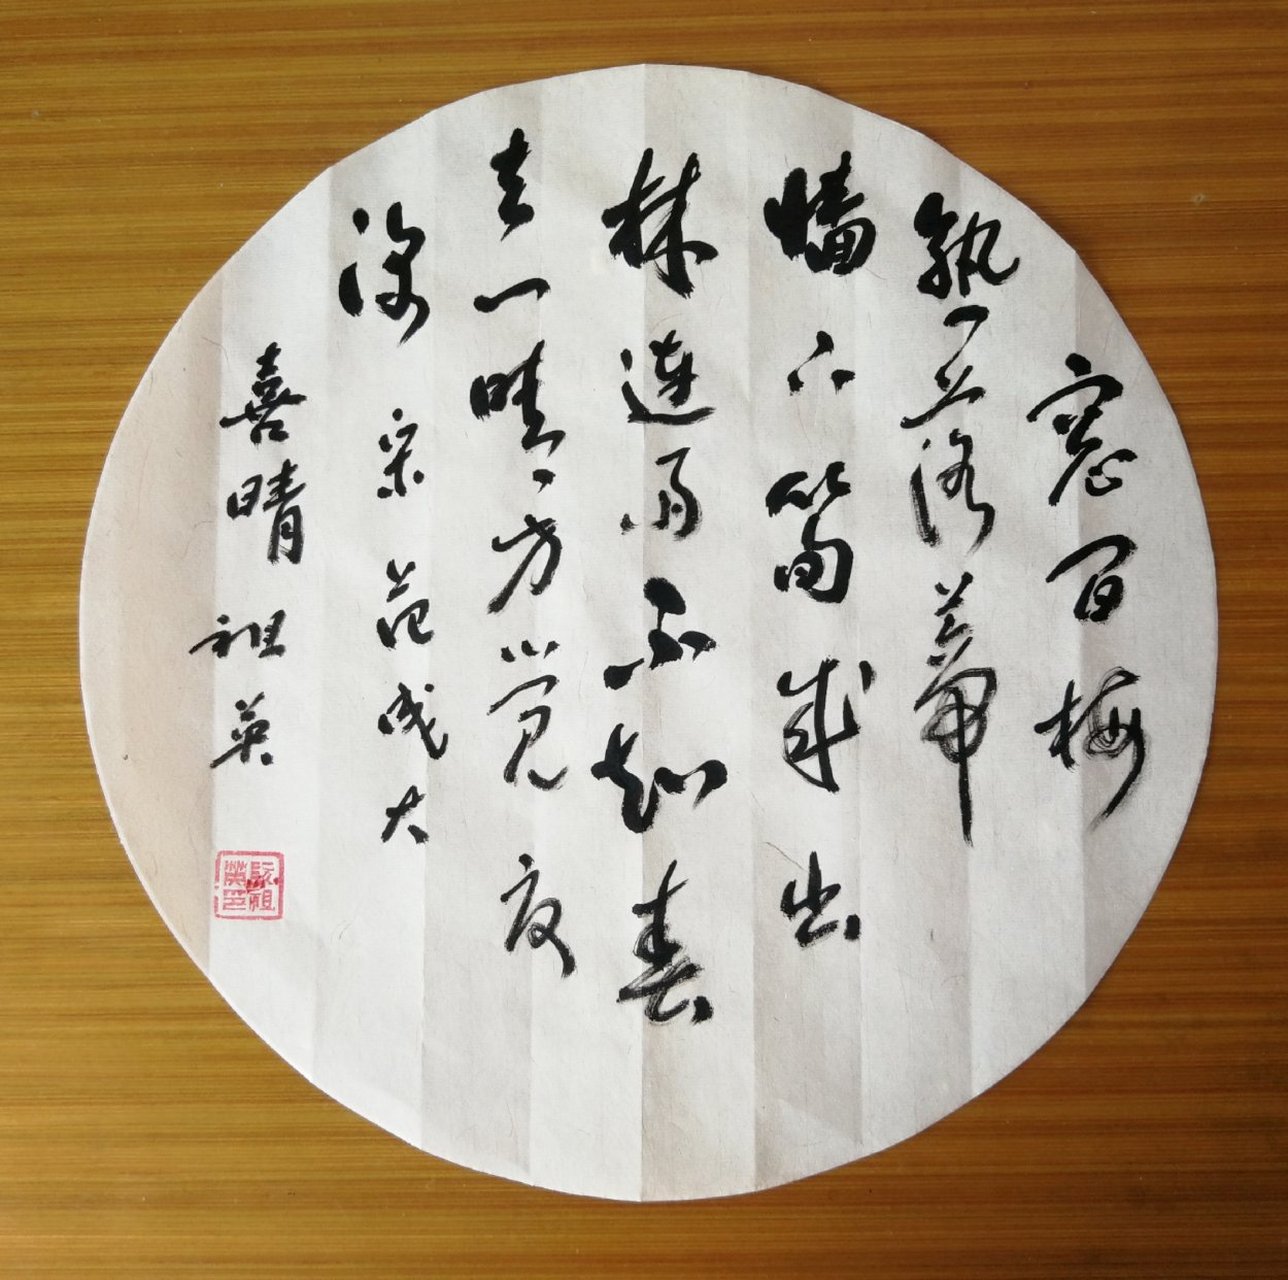 窓间梅
熟落蒂
墙下筍成出
林連雨不知春
去一晴方觉夏
深 宋 范成大
喜晴 祖英